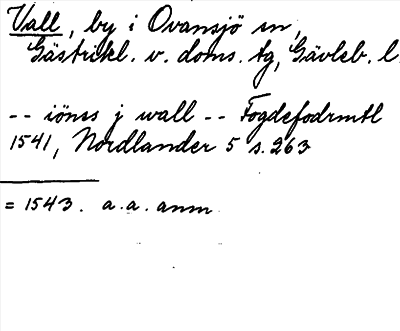 Vall, by i Ovansjö sn,
Gästrikl. v. doms. tg, Gävleb. l.
-- iönss j wall -- Fogdefodrmtl
1541, Nordlander 5 s. 263
= 1543. a. a. anm.